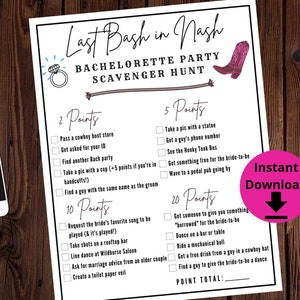 Last Bash in Nash
BACHELORETTE PARTY
SCAVENGER HUNT
2 Points
Pass a cowboy boot store
Get asked for your ID
Find another Bach party
Take a pic with a cop (+5 points if you're in
handcuffs!)
Find a guy with the same name as the groom
5 Points
Take a pic with a statue
Get a guy's phone number
See the Honky Tonk Bus
Get something free for the bride-to-be
Wave to a pedal pub going by
10 Points
Request the bride's favorite song to be
played (& it's played!)
Take shots on a rooftop bar
Line dance at Wildhorse Saloon
Ask for marriage advice from an older couple
Create a toilet paper veil
20 Points
Get someone to give you something
"borrowed" for the bride-to-be
Dance on a bar or table
Ride a mechanical bull
Get a free drink from a guy in a cowboy hat
Find a guy to give the bride-to-be a dance
POINT TOTAL:
Instant
Downloa